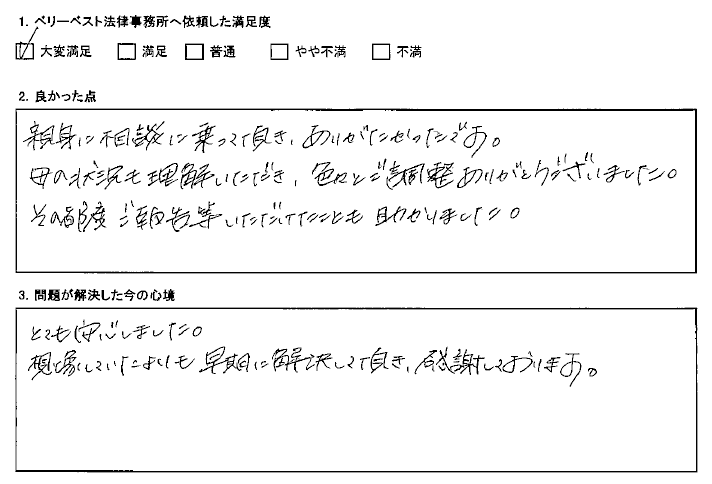 1. ベリーベスト法律事務所へ依頼した満足度
☑ 大変満足 □ 満足 □ 普通 □ やや不満 □ 不満
2. 良かった点
親身に相談に乗って頂き、ありがたかったです。
母の状況も理解いただき、色々とご調整ありがとうございました。
その都度ご報告等いただけたことも助かりました。
3. 問題が解決した今の心境
とても安心しました。
想像していたよりも早期に解決して頂き、感謝しております。